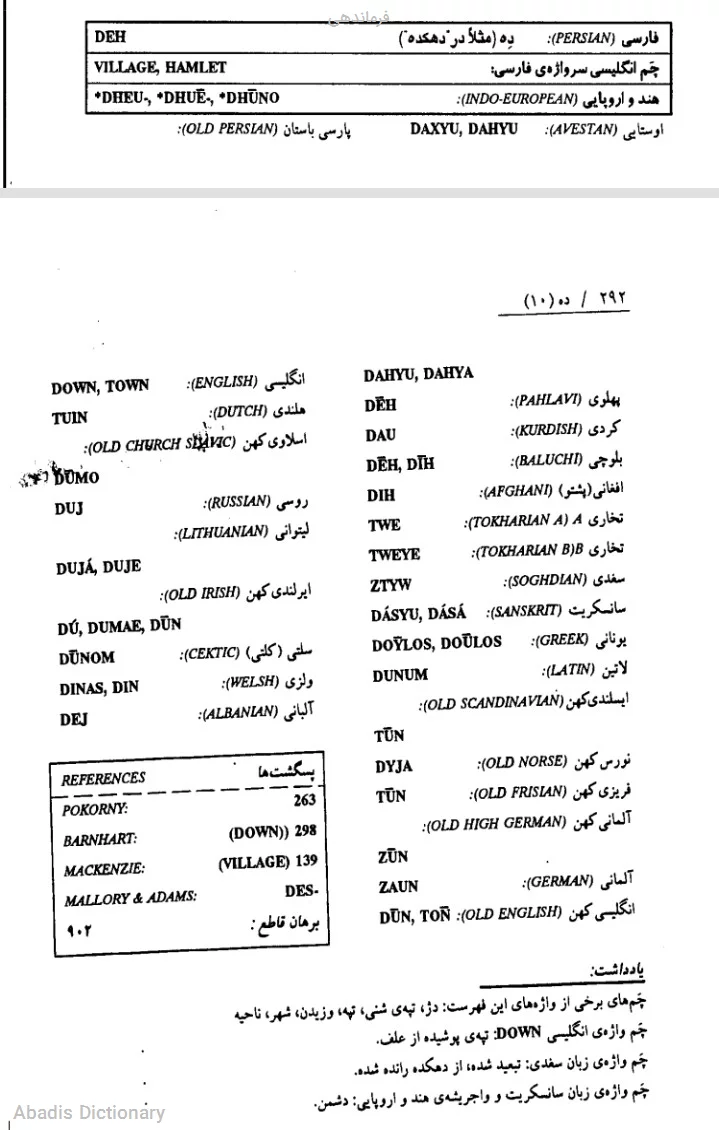 فرماندهی
فارسی (PERSIAN): دِه (مثلاً در "دهکده") DEH
چَمِ انگلیسی سرواژه‌ی فارسی: VILLAGE, HAMLET
هند و اروپایی (INDO-EUROPEAN): *DHEU-, *DHUĒ-, *DHŪNO
اوستایی (AVESTAN): DAXYU, DAHYU پارسی باستان (OLD PERSIAN):
۲۹۲ / ده (۱۰)
DAHYU, DAHYA
پهلوی (PAHLAVI): DĒH
کردی (KURDISH): DAU
بلوچی (BALUCHI): DĒH, DĪH
افغانی(پشتو) (AFGHANI): DIH
تخاری A (TOKHARIAN A): TWE
تخاری B(TOKHARIAN B): TWEYE
سغدی (SOGHDIAN): ZTYW
سانسکریت (SANSKRIT): DÁSYU, DÁSÁ
یونانی (GREEK): DOȲLOS, DOŪLOS
لاتین (LATIN): DUNUM
ایسلندی‌کهن (OLD SCANDINAVIAN):
TŪN
نورس کهن (OLD NORSE): DYJA
فریزی کهن (OLD FRISIAN): TŪN
آلمانی کهن (OLD HIGH GERMAN):
ZŪN
آلمانی (GERMAN): ZAUN
انگلیسی کهن (OLD ENGLISH): DŪN, TOÑ
انگلیسی (ENGLISH): DOWN, TOWN
هلندی (DUTCH): TUIN
اسلاوی کهن (OLD CHURCH SLAVIC):
DŪMO
روسی (RUSSIAN): DUJ
لیتوانی (LITHUANIAN):
DUJÁ, DUJE
ایرلندی کهن (OLD IRISH):
DÚ, DUMAE, DŪN
سلتی (کلتی) (CEKTIC): DŪNOM
ولزی (WELSH): DINAS, DIN
آلبانی (ALBANIAN): DEJ
پسگشت‌ها REFERENCES
POKORNY: 263
BARNHART: (DOWN)) 298
MACKENZIE: (VILLAGE) 139
MALLORY & ADAMS: DES-
برهان قاطع: ۹۰۲
یادداشت:
چَم‌های برخی از واژه‌های این فهرست: دژ، تپه‌ی شنی، تپه، وزیدن، شهر، ناحیه
چَم واژه‌ی انگلیسی DOWN: تپه‌ی پوشیده از علف.
چَم واژه‌ی زبان سغدی: تبعید شده، از دهکده رانده شده.
چَم واژه‌ی زبان سانسکریت و واجریشه‌ی هند و اروپایی: دشمن.
Abadis Dictionary